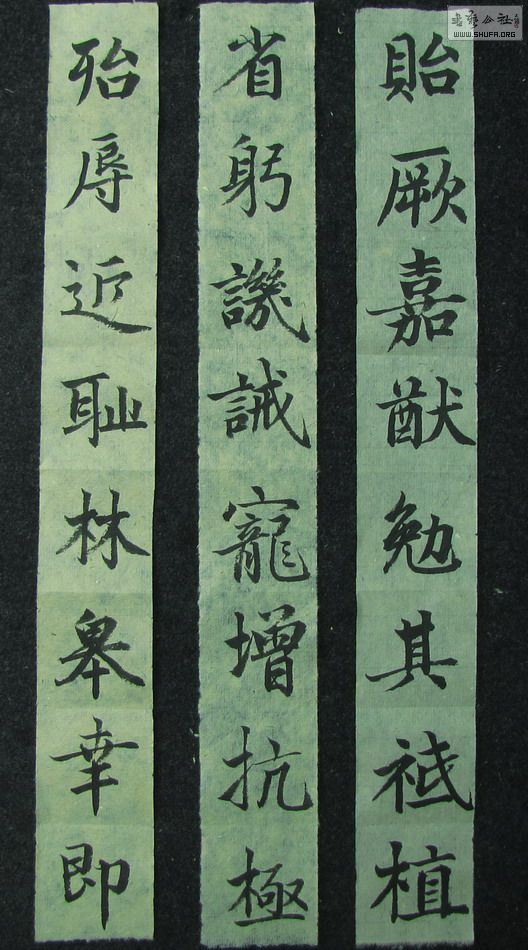 貽厥嘉猷勉其祗植
省躬譏誡寵增抗極
殆辱近耻林皋幸即
書法公社
WWW.SHUFA.ORG